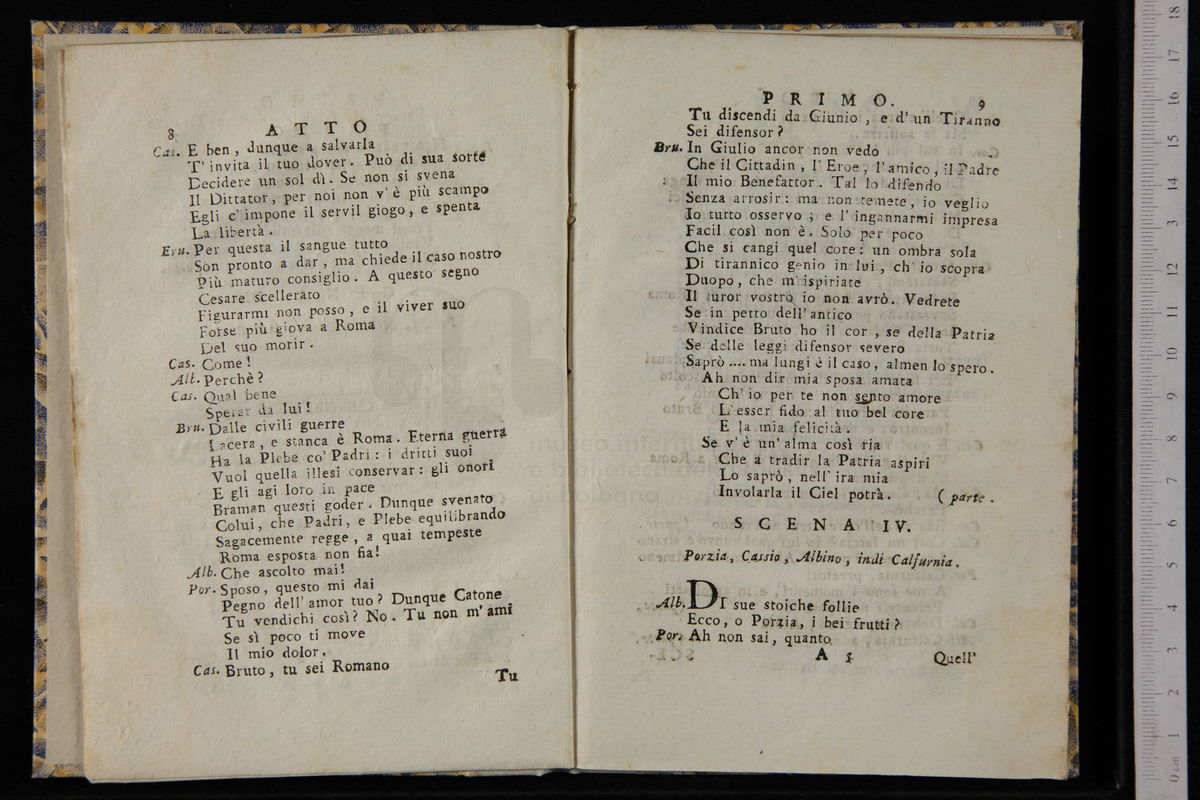 8 ATTO
Cas. E ben, dunque a salvarla
T' invita il tuo dover. Può di sua sorte
Decidere un sol dì. Se non si svena
Il Dittator, per noi non v'è più scampo
Egli c'impone il servil giogo, e spenta
La libertà.
Bru. Per questa il sangue tutto
Son pronto a dar, ma chiede il caso nostro
Più maturo consiglio. A questo segno
Cesare scellerato
Figurarmi non posso, e il viver suo
Forse più giova a Roma
Del suo morir.
Cas. Come!
Alb. Perchè?
Cas. Qual bene
Sperar da lui!
Bru. Dalle civili guerre
Lacera, e stanca è Roma. Eterna guerra
Ha la Plebe co' Padri: i dritti suoi
Vuol quella illesi conservar: gli onori
E gli agi loro in pace
Braman questi goder. Dunque svenato
Colui, che Padri, e Plebe equilibrando
Sagacemente regge, a quai tempeste
Roma esposta non fia!
Alb. Che ascolto mai!
Por. Sposo, questo mi dai
Pegno dell' amor tuo? Dunque Catone
Tu vendichi così? No. Tu non m' ami
Se sì poco ti move
Il mio dolor.
Cas. Bruto, tu sei Romano
Tu
PRIMO. 9
Tu discendi da Giunio, e d' un Tiranno
Sei difensor?
Bru. In Giulio ancor non vedo
Che il Cittadin, l' Eroe, l' amico, il Padre
Il mio Benefattor. Tal lo difendo
Senza arrosir: ma non temete, io veglio
Io tutto osservo; e l' ingannarmi impresa
Facil così non è. Solo per poco
Che si cangi quel core: un ombra sola
Di tirannico genio in lui, ch' io scopra
Duopo, che m' ispiriate
Il furor vostro io non avrò. Vedrete
Se in petto dell' antico
Vindice Bruto ho il cor, se della Patria
Se delle leggi difensor severo
Saprò .... ma lungi è il caso, almen lo spero.
Ah non dir mia sposa amata
Ch' io per te non sento amore
L' esser fido al tuo bel core
E la mia felicità.
Se v' è un' alma così ria
Che a tradir la Patria aspiri
Lo saprò, nell' ira mia
Involarla il Ciel potrà. (parte.
SCENA IV.
Porzia, Cassio, Albino, indi Calfurnia.
Alb. DI sue stoiche follie
Ecco, o Porzia, i bei frutti?
Por. Ah non sai, quanto
A 5 Quell'